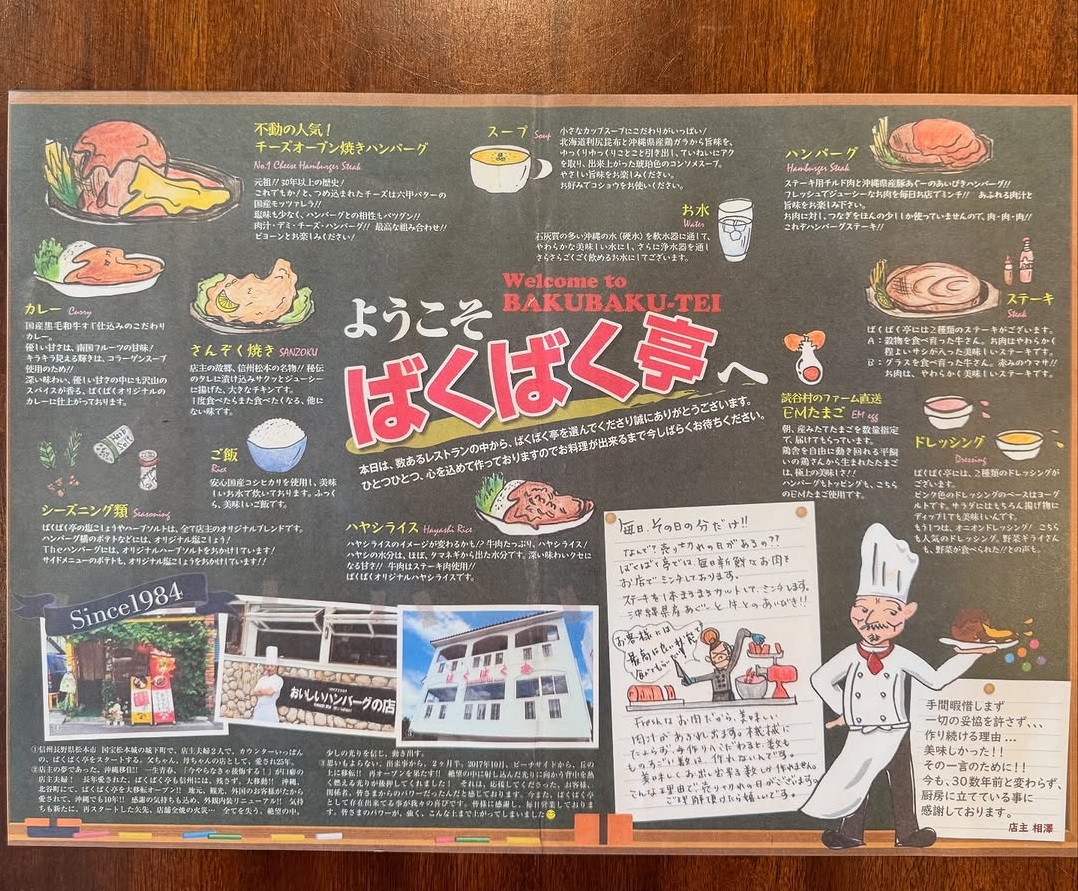 不動の人気！
チーズオーブン焼きハンバーグ
No.1 Cheese Hamburger Steak
元祖!! 30年以上の歴史！
これでもか！と、つめ込まれたチーズは六甲バターの
国産モッツァレラ!!
塩味も少なく、ハンバーグとの相性もバツグン!!
肉汁・デミ・チーズ・ハンバーグ!! 最高な組み合わせ!!
ビヨーンとお楽しみください！
スープ Soup
小さなカップスープにこだわりがいっぱい！
北海道利尻昆布と沖縄県産鶏ガラから旨味を、
ゆっくりゆっくりことこと引き出し、ていねいにアク
を取り、出来上がった琥珀色のコンソメスープ。
やさしい旨味をお楽しみください。
お好みでコショウをお使いください。
お水
Water
石灰質の多い沖縄の水（硬水）を軟水器に通して、
やわらかな美味しい水にし、さらに浄水器を通し
さらさらごくごく飲めるお水にしてございます。
ハンバーグ
Hamburger Steak
ステーキ用チルド肉と沖縄県産豚あぐーのあいびきハンバーグ!!
フレッシュでジューシーなお肉を毎日お店でミンチ!! あふれる肉汁と
旨味をお楽しみ下さい。
お肉に対し、つなぎをほんの少ししか使っていませんので、肉・肉・肉!!
これぞハンバーグステーキ!!
カレー Curry
国産黒毛和牛すじ仕込みのこだわり
カレー。
優しい甘さは、南国フルーツの甘味！
キラキラ見える輝きは、コラーゲンスープ
使用のため!!
深い味わい、優しい甘さの中にも沢山の
スパイスが香る、ばくばくオリジナルの
カレーに仕上がっております。
さんぞく焼き SANZOKU
店主の故郷、信州松本の名物!! 秘伝
のタレに漬け込みサクッとジューシー
に揚げた、大きなチキンです。
1度食べたらまた食べたくなる、他に
ない味です。
Welcome to
BAKUBAKU-TEI
ようこそ
ばくばく亭へ
本日は、数あるレストランの中から、ばくばく亭を選んでくださり誠にありがとうございます。
ひとつひとつ、心を込めて作っておりますのでお料理が出来るまで今しばらくお待ちください。
ステーキ
Steak
ばくばく亭には2種類のステーキがございます。
A：穀物を食べ育った牛さん。お肉はやわらかく
程よいサシが入った美味しいステーキです。
B：グラスを食べ育った牛さん。赤みのウマサ!!
お肉は、やわらかく美味しいステーキです。
読谷村のファーム直送
EMたまご EM egg
朝、産みたてたまごを数量指定
で、届けてもらっています。
鶏舎を自由に動き回れる平飼
いの鶏さんから生まれたたまご
は、極上の美味しさ!!
ハンバーグもトッピングも、こちら
のEMたまご使用です。
ドレッシング
Dressing
ばくばく亭には、2種類のドレッシングが
ございます。
ピンク色のドレッシングのベースはヨーグ
ルトです。サラダにはもちろん揚げ物に
ディップしても美味しいんです。
もう1つは、オニオンドレッシング！ こちら
も人気のドレッシング。野菜ギライさん
も、野菜が食べられた!!との声も。
ご飯
Rice
安心国産コシヒカリを使用し、美味
しいお水で炊いております。ふっく
ら、美味しいご飯です。
シーズニング類 Seasoning
ばくばく亭の塩こしょうやハーブソルトは、全て店主のオリジナルブレンドです。
ハンバーグ横のポテトなどには、オリジナル塩こしょう！
Theハンバーグには、オリジナルハーブソルトをおかけしています！
サイドメニューのポテトも、オリジナル塩こしょうをおかけしています!!
ハヤシライス Hayashi Rice
ハヤシライスのイメージが変わるかも!? 牛肉たっぷり、ハヤシライス！
ハヤシの水分は、ほぼ、タマネギから出た水分です。深い味わいクセに
なる甘さ!! 牛肉はステーキ肉使用!!
ばくばくオリジナルハヤシライスです。
毎日、その日の分だけ!!
なんで?売り切れの日があるの??
ばくばく亭では、毎日新鮮なお肉を
お店でミンチしております。
ステーキを1本まるまるカットして、ミンチします。
沖縄県産あぐーと牛とのあいびき!!
お客様には
最高に良い状態で
食べてもらいたい！
Freshなお肉だから、美味しい
肉汁があふれ出ます。機械に
たよらず、手作りにこだわると数も
ものすごい数は、作れないんです。
美味しくお出し出来る数しか作れません。
こんな理由で売り切れの日がございます。
ご理解頂けたら嬉しいです。
Since1984
おいしいハンバーグの店
ばくばく亭
①信州長野県松本市 国宝松本城の城下町で、店主夫婦2人で、カウンターいっぱい
の、ばくばく亭をスタートする。父ちゃん、母ちゃんの店として、愛され25年。
②店主の夢であった、沖縄移住!! 一生青春、「今やらなきゃ後悔する！」が口癖の
店主夫婦！ 長年愛された、ばくばく亭も信州には、残さず、大移動!! 沖縄、
北谷町にて、ばくばく亭を大移転オープン!! 地元、観光、外国のお客様がたから
愛されて、沖縄でも10年!! 感謝の気持ちも込め、外観内装リニューアル!! 気持
ちも新たに、再スタートした矢先、店舗全焼の火災… 全てを失う。絶望の中、
少しの光りを信じ、動き出す。
③思いもよらない、出来事から、2ヶ月半。2017年10月、ビーチサイドから、丘の
上に移転!! 再オープンを果たす!! 絶望の中に射し込んだ光りに向かう背中を熱
く燃える光りが後押してくれました！ それは、応援してくださった、お客様、
関係者、皆さまからのパワーだったんだと感じております。今また、ばくばく亭
として存在出来てる事が我々の喜びです。皆様に感謝し、毎日営業しておりま
す。皆さまのパワーが、強く、こんな上まで上がってしまいました
手間暇惜しまず
一切の妥協を許さず、、、
作り続ける理由…
美味しかった!!
その一言のために!!
今も、30数年前と変わらず、
厨房に立てている事に
感謝しております。
店主 相澤